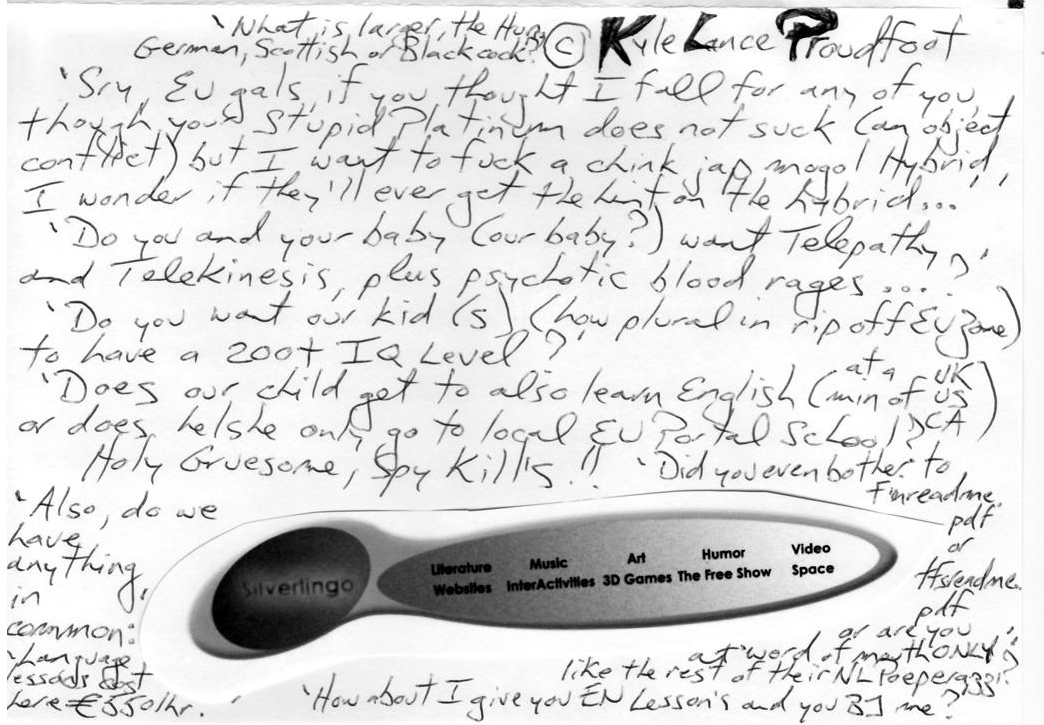 'What is larger, the Hung
German, Scottish or Black cock?'
© Kyle Lance Proudfoot
'Sry, EU gals, if you thought I fall for any of you,
though, your Stupid Platinum does not suck (an object
conflict) but I want to fuck a chink jap mogol Hybrid,
I wonder if they'll ever get the hint on the hybrid...'
'Do you and your baby (our baby?) want Telepathy
and Telekinesis, plus psychotic blood rages...?'
'Do you want our kid(s) (how plural in rip off EU Zone)
to have a 200+ IQ Level?'
'Does our child get to also learn English (min of at a UK US CA)
or does he/she only go to local EU Portal School?'
Holy Gruesome, Spy Kills!!
'Did you even bother to
f'nreadme.
pdf
or
ffsreadme.
pdf
or are you
at word of mouth ONLY
like the rest of their NL
'Also, do we
have
anything
in
common:
Language
lessons cost
here €550/hr.'
Silverlingo
Literature Music Art Humor Video
Websites InterActivities 3D Games The Free Show Space
'How about I give you EN Lesson's and you BJ me?'